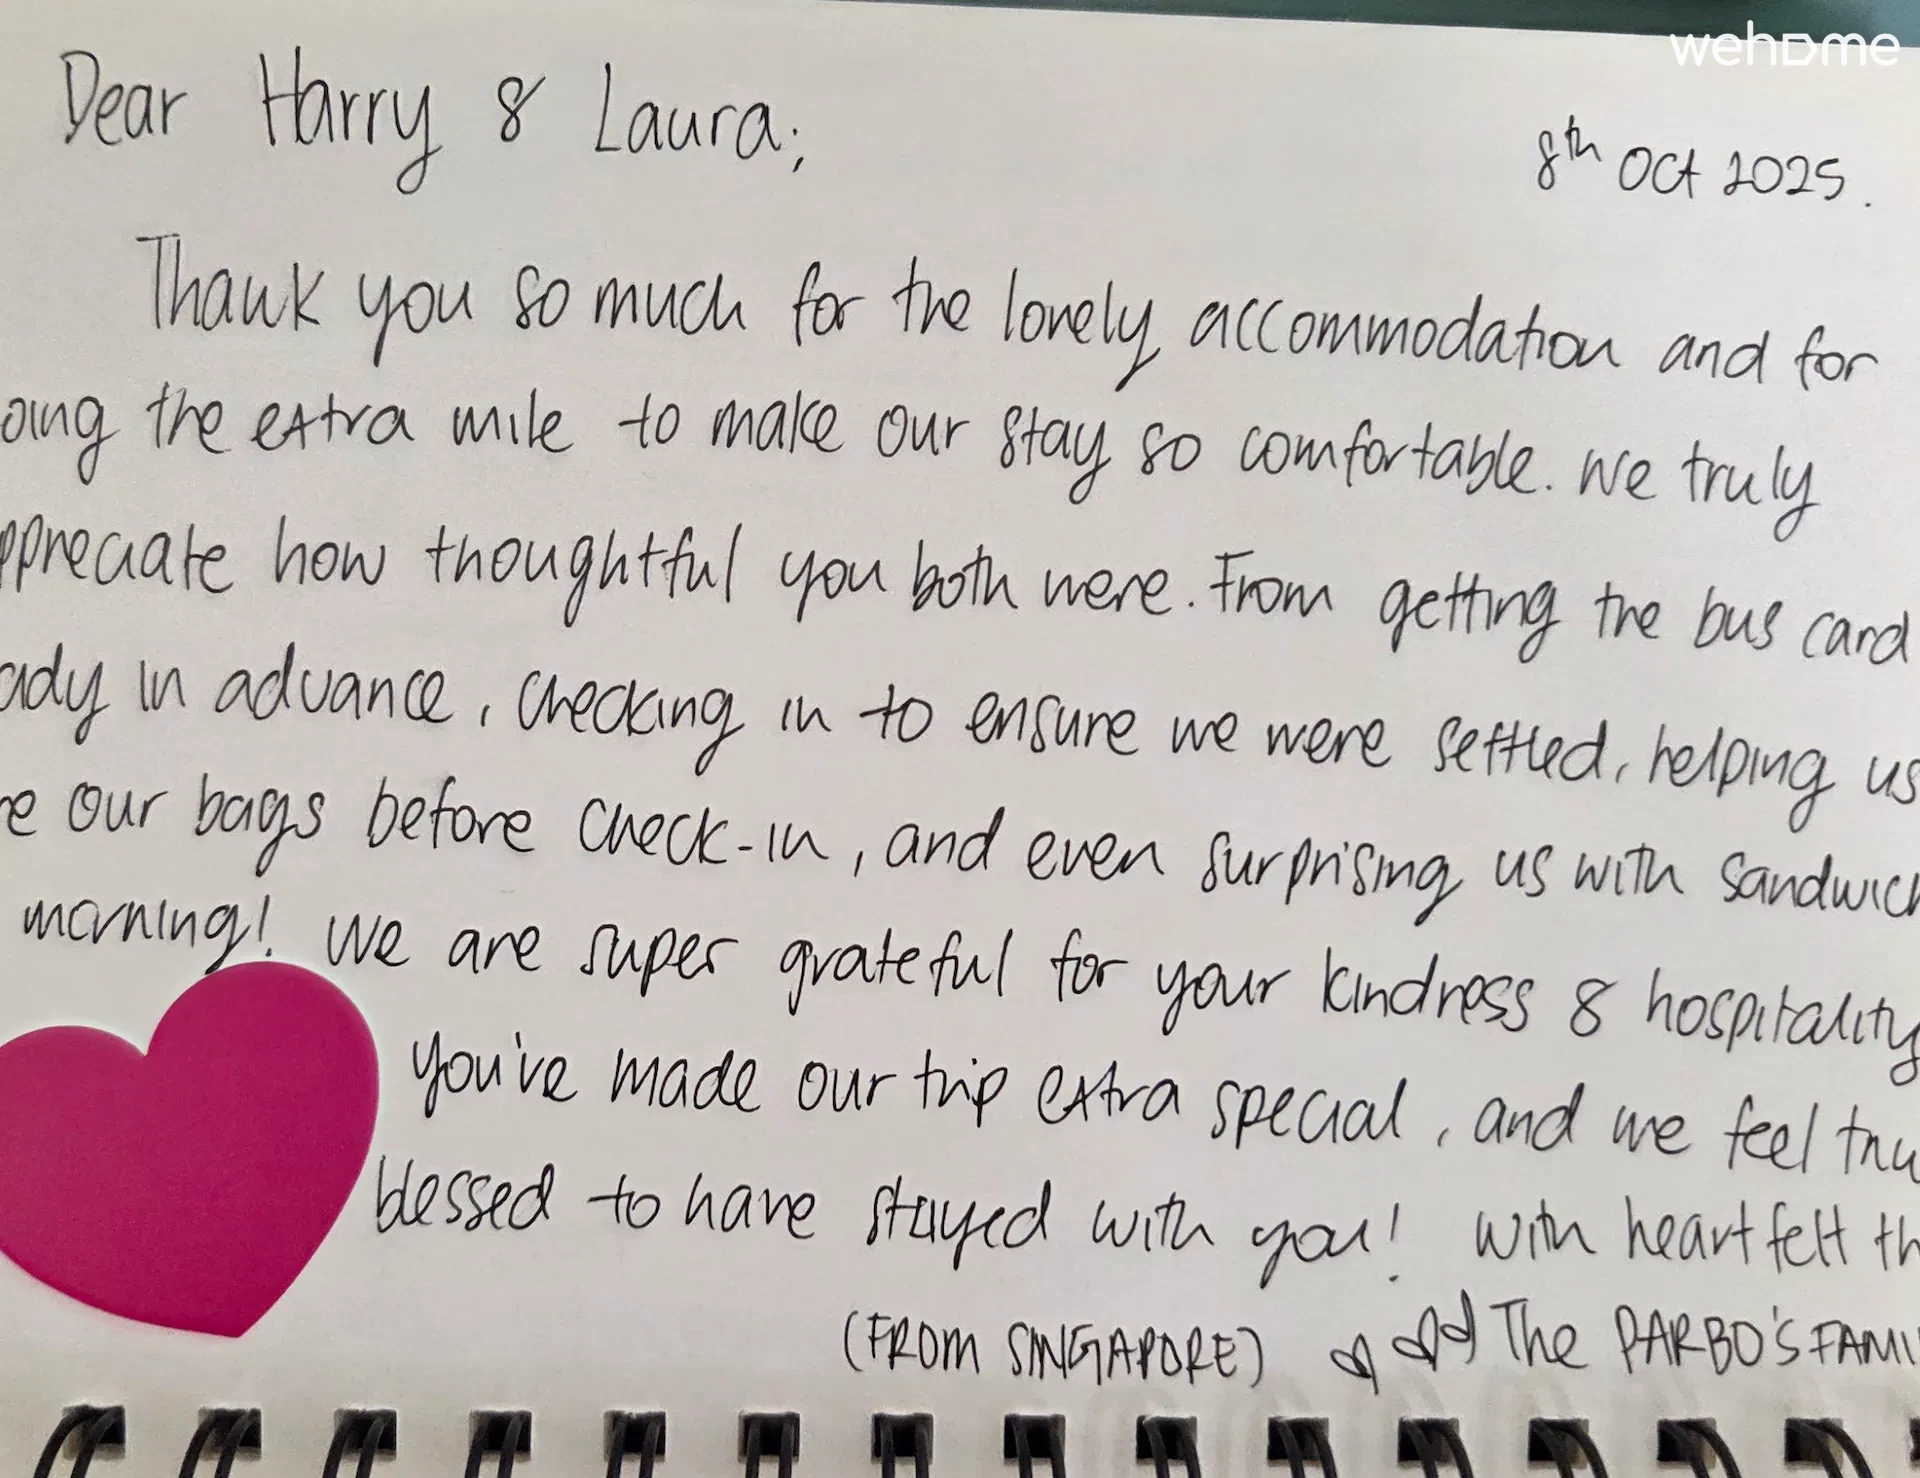 wehome
Dear Harry & Laura;
8th Oct 2025.
Thank you so much for the lovely accommodation and for
oing the extra mile to make our stay so comfortable. We truly
ppreciate how thoughtful you both were. From getting the bus card
ady in advance, checking in to ensure we were settled, helping us
re our bags before check-in, and even surprising us with sandwich
morning! We are super grateful for your kindness & hospitality
You've made our trip extra special, and we feel tru
blessed to have stayed with you! With heartfelt th
(FROM SINGAPORE) The PARBO'S FAMI